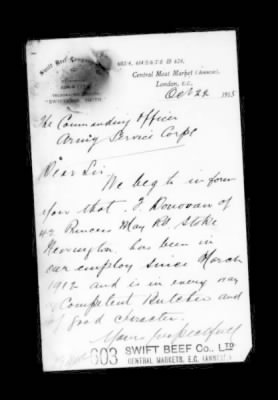 Swift Beef Company
Central Meat Market (Annexe),
London, E.C.,
Oct 22 1915
The Commanding Officer
Army Service Corps
Dear Sir
We beg to inform
you that J. Donovan of
42 Princess May Rd Stoke
Newington has been in
our employ since March
1912 and is in every way
a Competent Butcher and
of good character.
Yours respectfully
603 SWIFT BEEF CO., LTD
CENTRAL MARKETS, E.C. (ANNEXE)